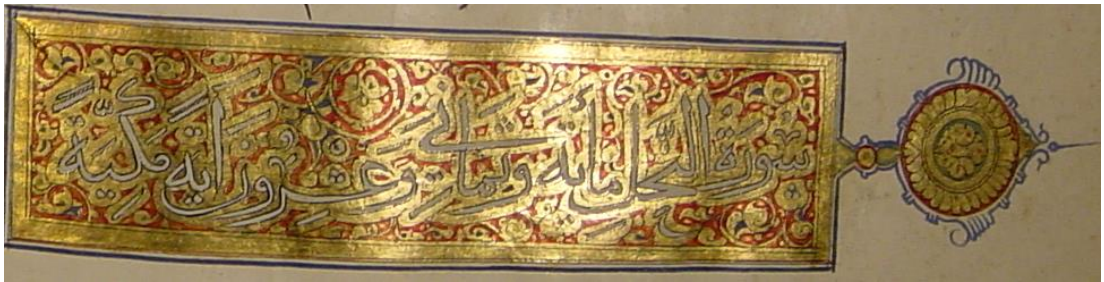 سورة النحل مائة وثماني وعشرون آية مكية